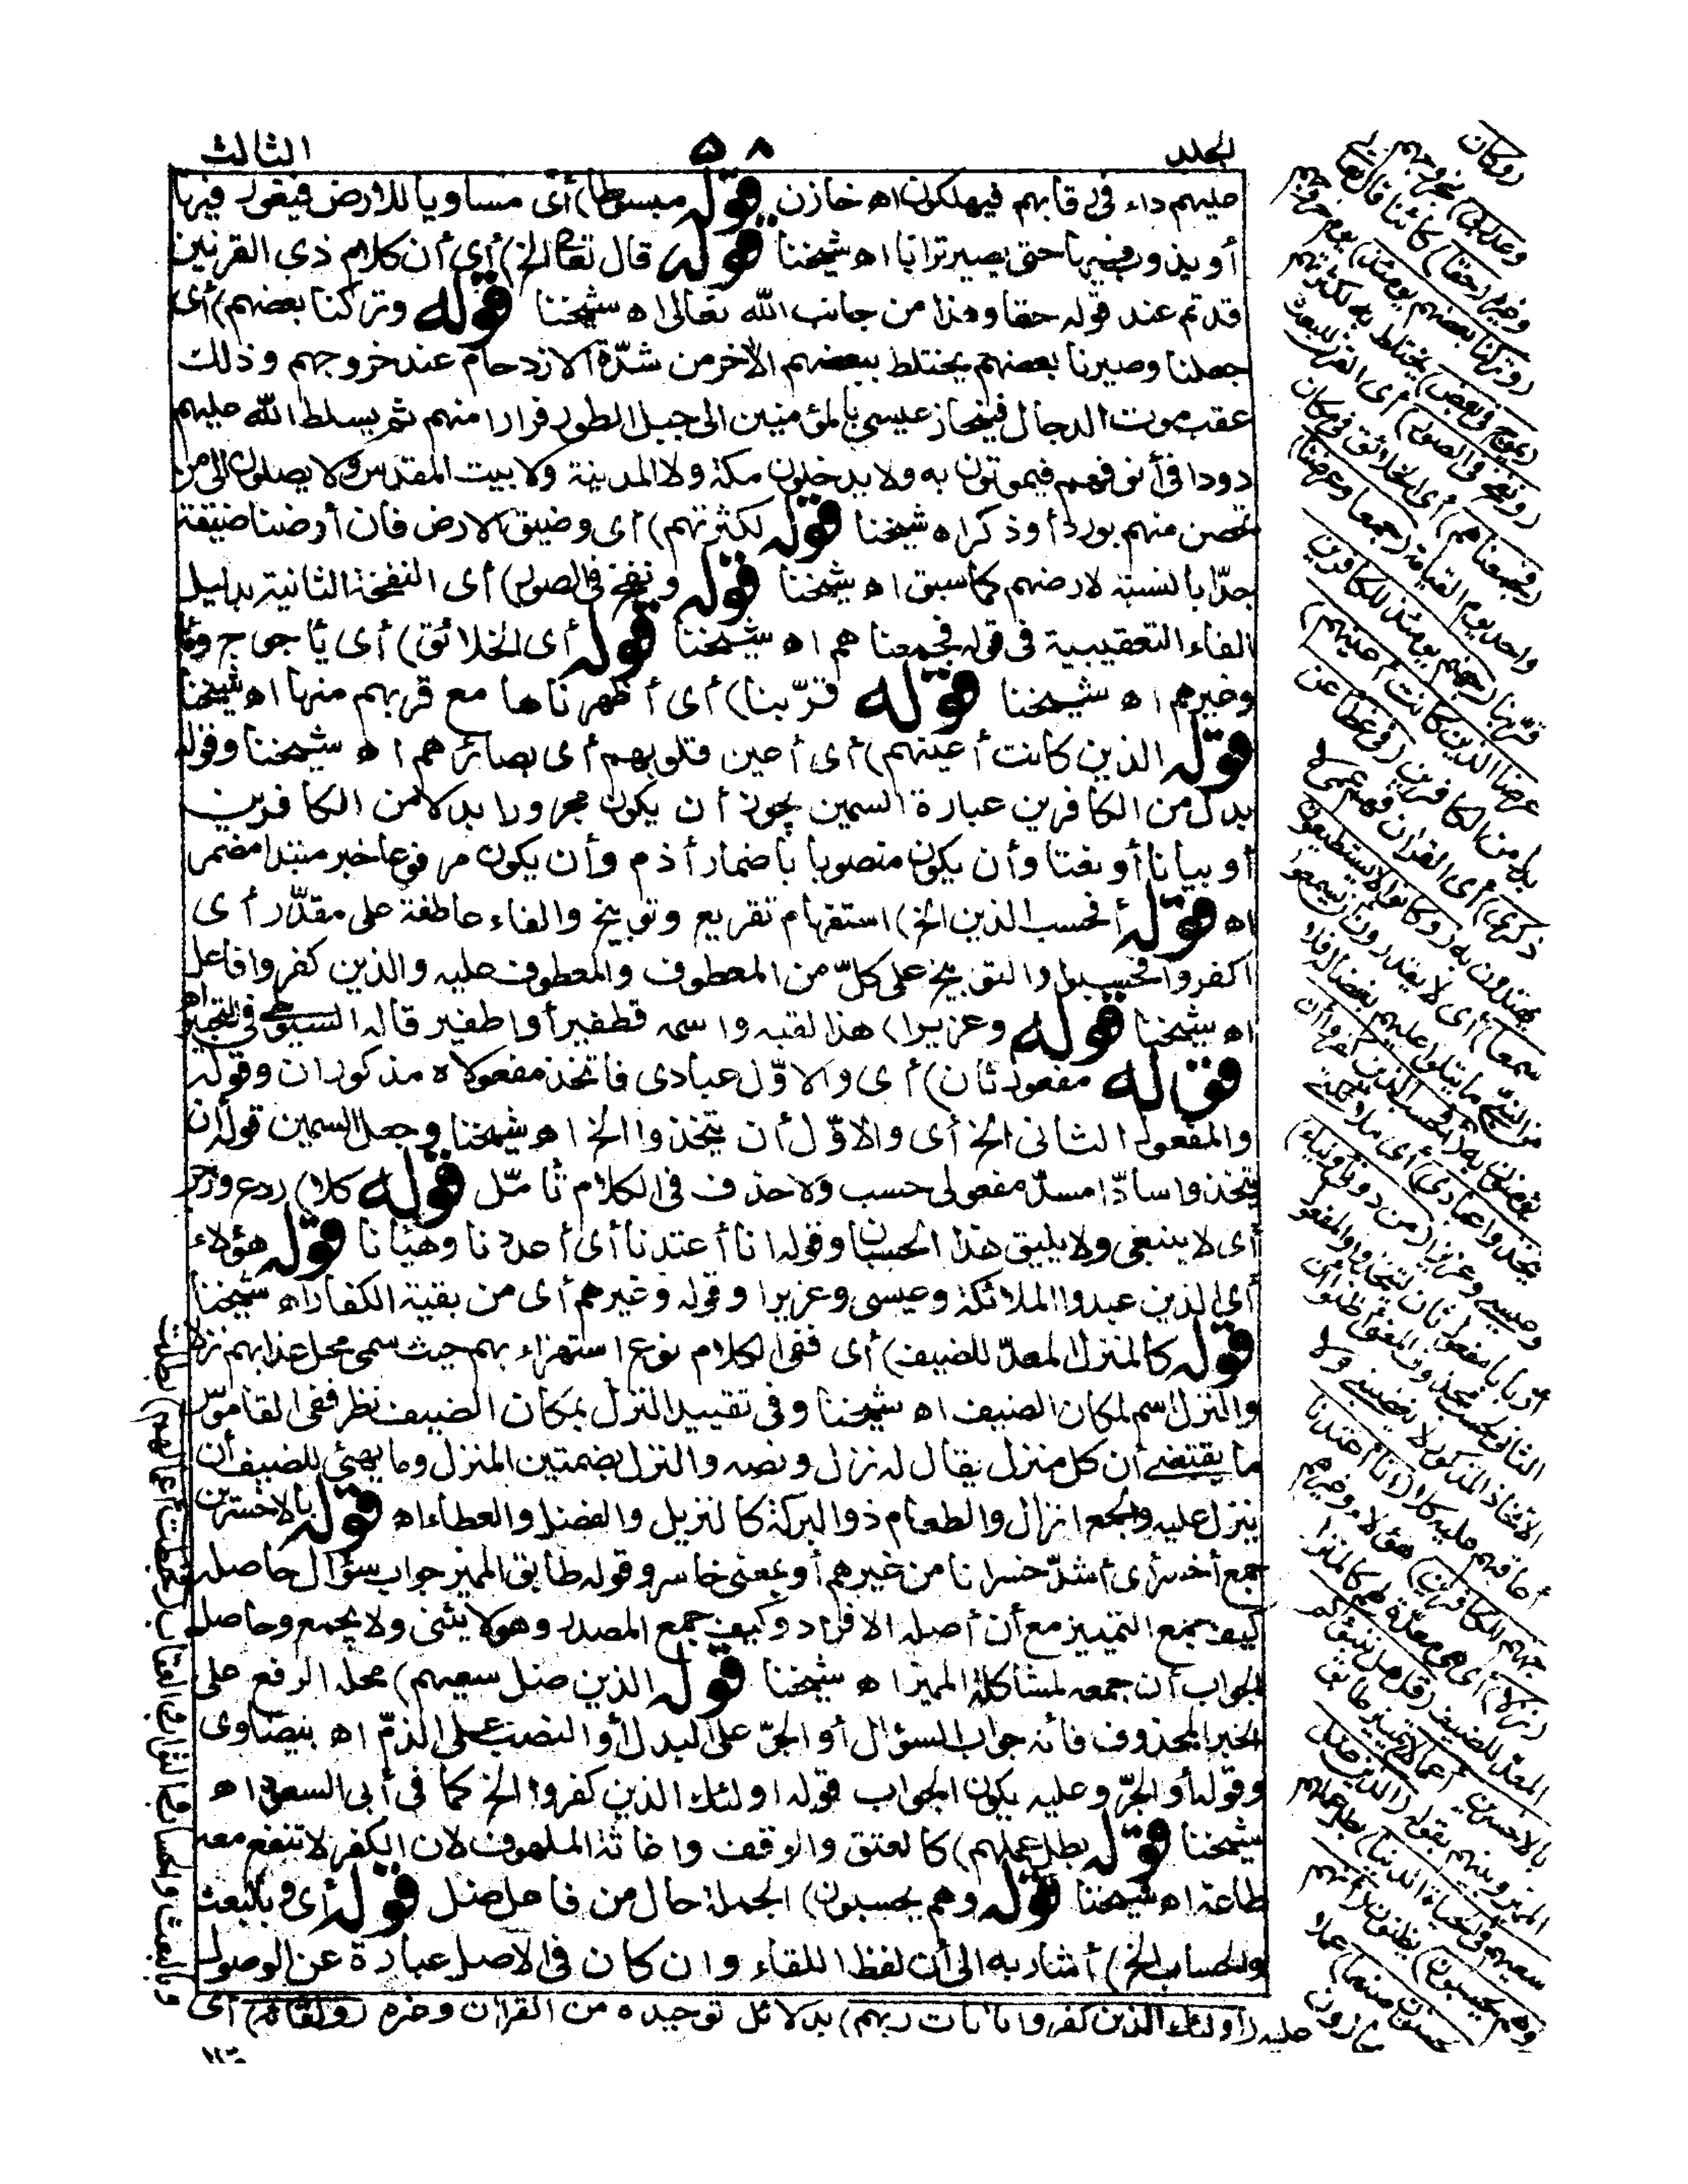 الجلد
٥٨
الثالث
عليهم داء فى رقابهم فيهلكون اه خازن قوله مبسوطا) أى مساويا للارض فيغور فيها
أو يذوب فيها حتى يصير ترابا اه شيخنا قوله قال تعالى الخ) أى أن كلام ذى القرنين
قد تم عند قوله حقا وهذا من جانب الله تعالى اه شيخنا قوله وتركنا بعضهم) أى
جعلنا وصيرنا بعضهم يختلط ببعضهم الآخر من شدّة الازدحام عند خروجهم وذلك
عقب موت الدجال فينحاز عيسى بالمؤمنين الى جبل الطور فرارا منهم ثم يسلط الله عليهم
دودا فى أنوفهم فيموتون به ولا يدخلون مكة ولا المدينة ولا بيت المقدس ولا يصلون الى من
تحصن منهم بورد أو ذكر اه شيخنا قوله لكثرتهم) أى وضيق الارض فان أرضنا ضيقة
جدّا بالنسبة لارضهم كما سبق اه شيخنا قوله ونفخ فى الصور) أى النفخة الثانية بدليل
الفاء التعقيبية فى قوله فجمعناهم اه شيخنا قوله أى الخلائق) أى يأجوج ومأ
وغيرهم اه شيخنا قوله قرّبنا) أى أظهرناها مع قربهم منها اه شيخنا
قوله الذين كانت أعينهم) أى أعين قلوبهم أى بصائرهم اه شيخنا وقوله
بدل من الكافرين عبارة السمين يجوز أن يكون مجرورا بدلا من الكافرين
أو بيانا أو نعتا وأن يكون منصوبا باضمار أذم وأن يكون مرفوعا خبر مبتدا مضمر
اه قوله أفحسب الذين الخ) استفهام تقريع وتوبيخ والفاء عاطفة على مقدّر أى
اكفروا فحسبوا والتوبيخ على كلّ من المعطوف والمعطوف عليه والذين كفروا فاعل
اه شيخنا قوله وعزيرا) هذا لقبه واسمه قطفير أو اطفير قاله السيوطى فى التحبير اه
قوله مفعول ثان) أى والاوّل عبادى فاتخذ مفعولاه مذكوران وقوله
والمفعول الثانى الخ أى والاوّل أن يتخذوا الخ اه شيخنا وجعل السمين قوله أن
يتخذوا سادّا مسدّ مفعولى حسب ولا حذف فى الكلام تأمّل قوله كلا) ردع وزجر
أى لا ينبغى ولا يليق هذا الحسبان وقوله انا أعتدنا أى أعددنا وهيأنا قوله هؤلاء
أى الذين عبدوا الملائكة وعيسى وعزيرا وقوله وغيرهم أى من بقية الكفار اه شيخنا
قوله كالمنزل المعدّ للضيف) أى ففى الكلام نوع استهزاء بهم حيث سمى محل عذابهم نزلا
والنزل اسم لمكان الضيف اه شيخنا وفى تقييد النزل بمكان الضيف نظر ففى القاموس
ما يقتضى أن كل منزل يقال له نزل ونصه والنزل بضمتين المنزل وما يهيئ للضيف أن
ينزل عليه والجمع انزال والطعام ذو البركة كالنزيل والفضل والعطاء اه قوله بالاخسرين
جمع أخسر أى أشدّ خسرانا من غيرهم أو بمعنى خاسر وقوله طابق المميز جواب سؤال حاصله
كيف جمع التمييز مع أن أصله الافراد وكيف جمع المصدر وهو لا يثنى ولا يجمع وحاصل
الجواب أن جمعه لمشاكلة المميز اه شيخنا قوله الذين ضل سعيهم) محله الرفع على
الخبر المحذوف فانه جواب السؤال أو الجرّ على البدل أو النصب على الذمّ اه بيضاوى
وقوله أو الجرّ وعليه يكون الجواب قوله اولئك الذين كفروا الخ كما فى أبى السعود اه
شيخنا قوله بطل عملهم) كالعتق والوقف واغاثة الملهوف لان الكفر لا تنفع معه
طاعة اه شيخنا قوله وهم يحسبون) الجملة حال من فاعل ضل قوله أى وبالبعث
والحساب الخ) أشار به الى أن لفظ اللقاء وان كان فى الاصل عبارة عن الوصول
وكان
وعد ربى) بخروجهم
وغيره (حقا) كائنا قال تعالى
(وتركنا بعضهم يومئذ) يوم خروجهم
(يموج فى بعض) يختلط به لكثرتهم
(ونفخ فى الصور) أى القرن للبعث
(فجمعناهم) أى الخلائق فى مكان
واحد يوم القيامة (جمعا وعرضنا)
قرّبنا (جهنم يومئذ للكافرين
عرضا الذين كانت أعينهم)
بدل من الكافرين (فى غطاء عن
ذكرى) أى القرآن فهم عمى لا
يهتدون به (وكانوا لا يستطيعون
سمعا) أى لا يقدرون أن يسمعوا
من النبى ما يتلو عليهم بغضا له فلا
يؤمنون به (أفحسب الذين كفروا أن
يتخذوا عبادى) أى ملائكتى
وعيسى وعزيرا (من دونى أولياء)
أربابا مفعول ثان ليتخذوا والمفعول
الثانى لحسب محذوف المعنى أظنوا أن
الاتخاذ المذكور لا يغضبنى ولا
أعاقبهم عليه كلا (انا أعتدنا
جهنم للكافرين) هؤلاء وغيرهم
(نزلا) أى هى معدّة لهم كالمنزل
المعدّ للضيف (قل هل ننبئكم
بالاخسرين أعمالا) تمييز طابق
المميز وبينهم بقوله (الذين ضل
سعيهم فى الحياة الدنيا) بطل عملهم
(وهم يحسبون) يظنون (أنهم
يحسنون صنعا) عملا
يجازون
عليه (أولئك الذين كفروا بآيات ربهم) بدلائل توحيده من القرآن وغيره (ولقائه) أى
وبالبعث والحساب والثواب والعقاب (فحبطت أعمالهم) بطلت